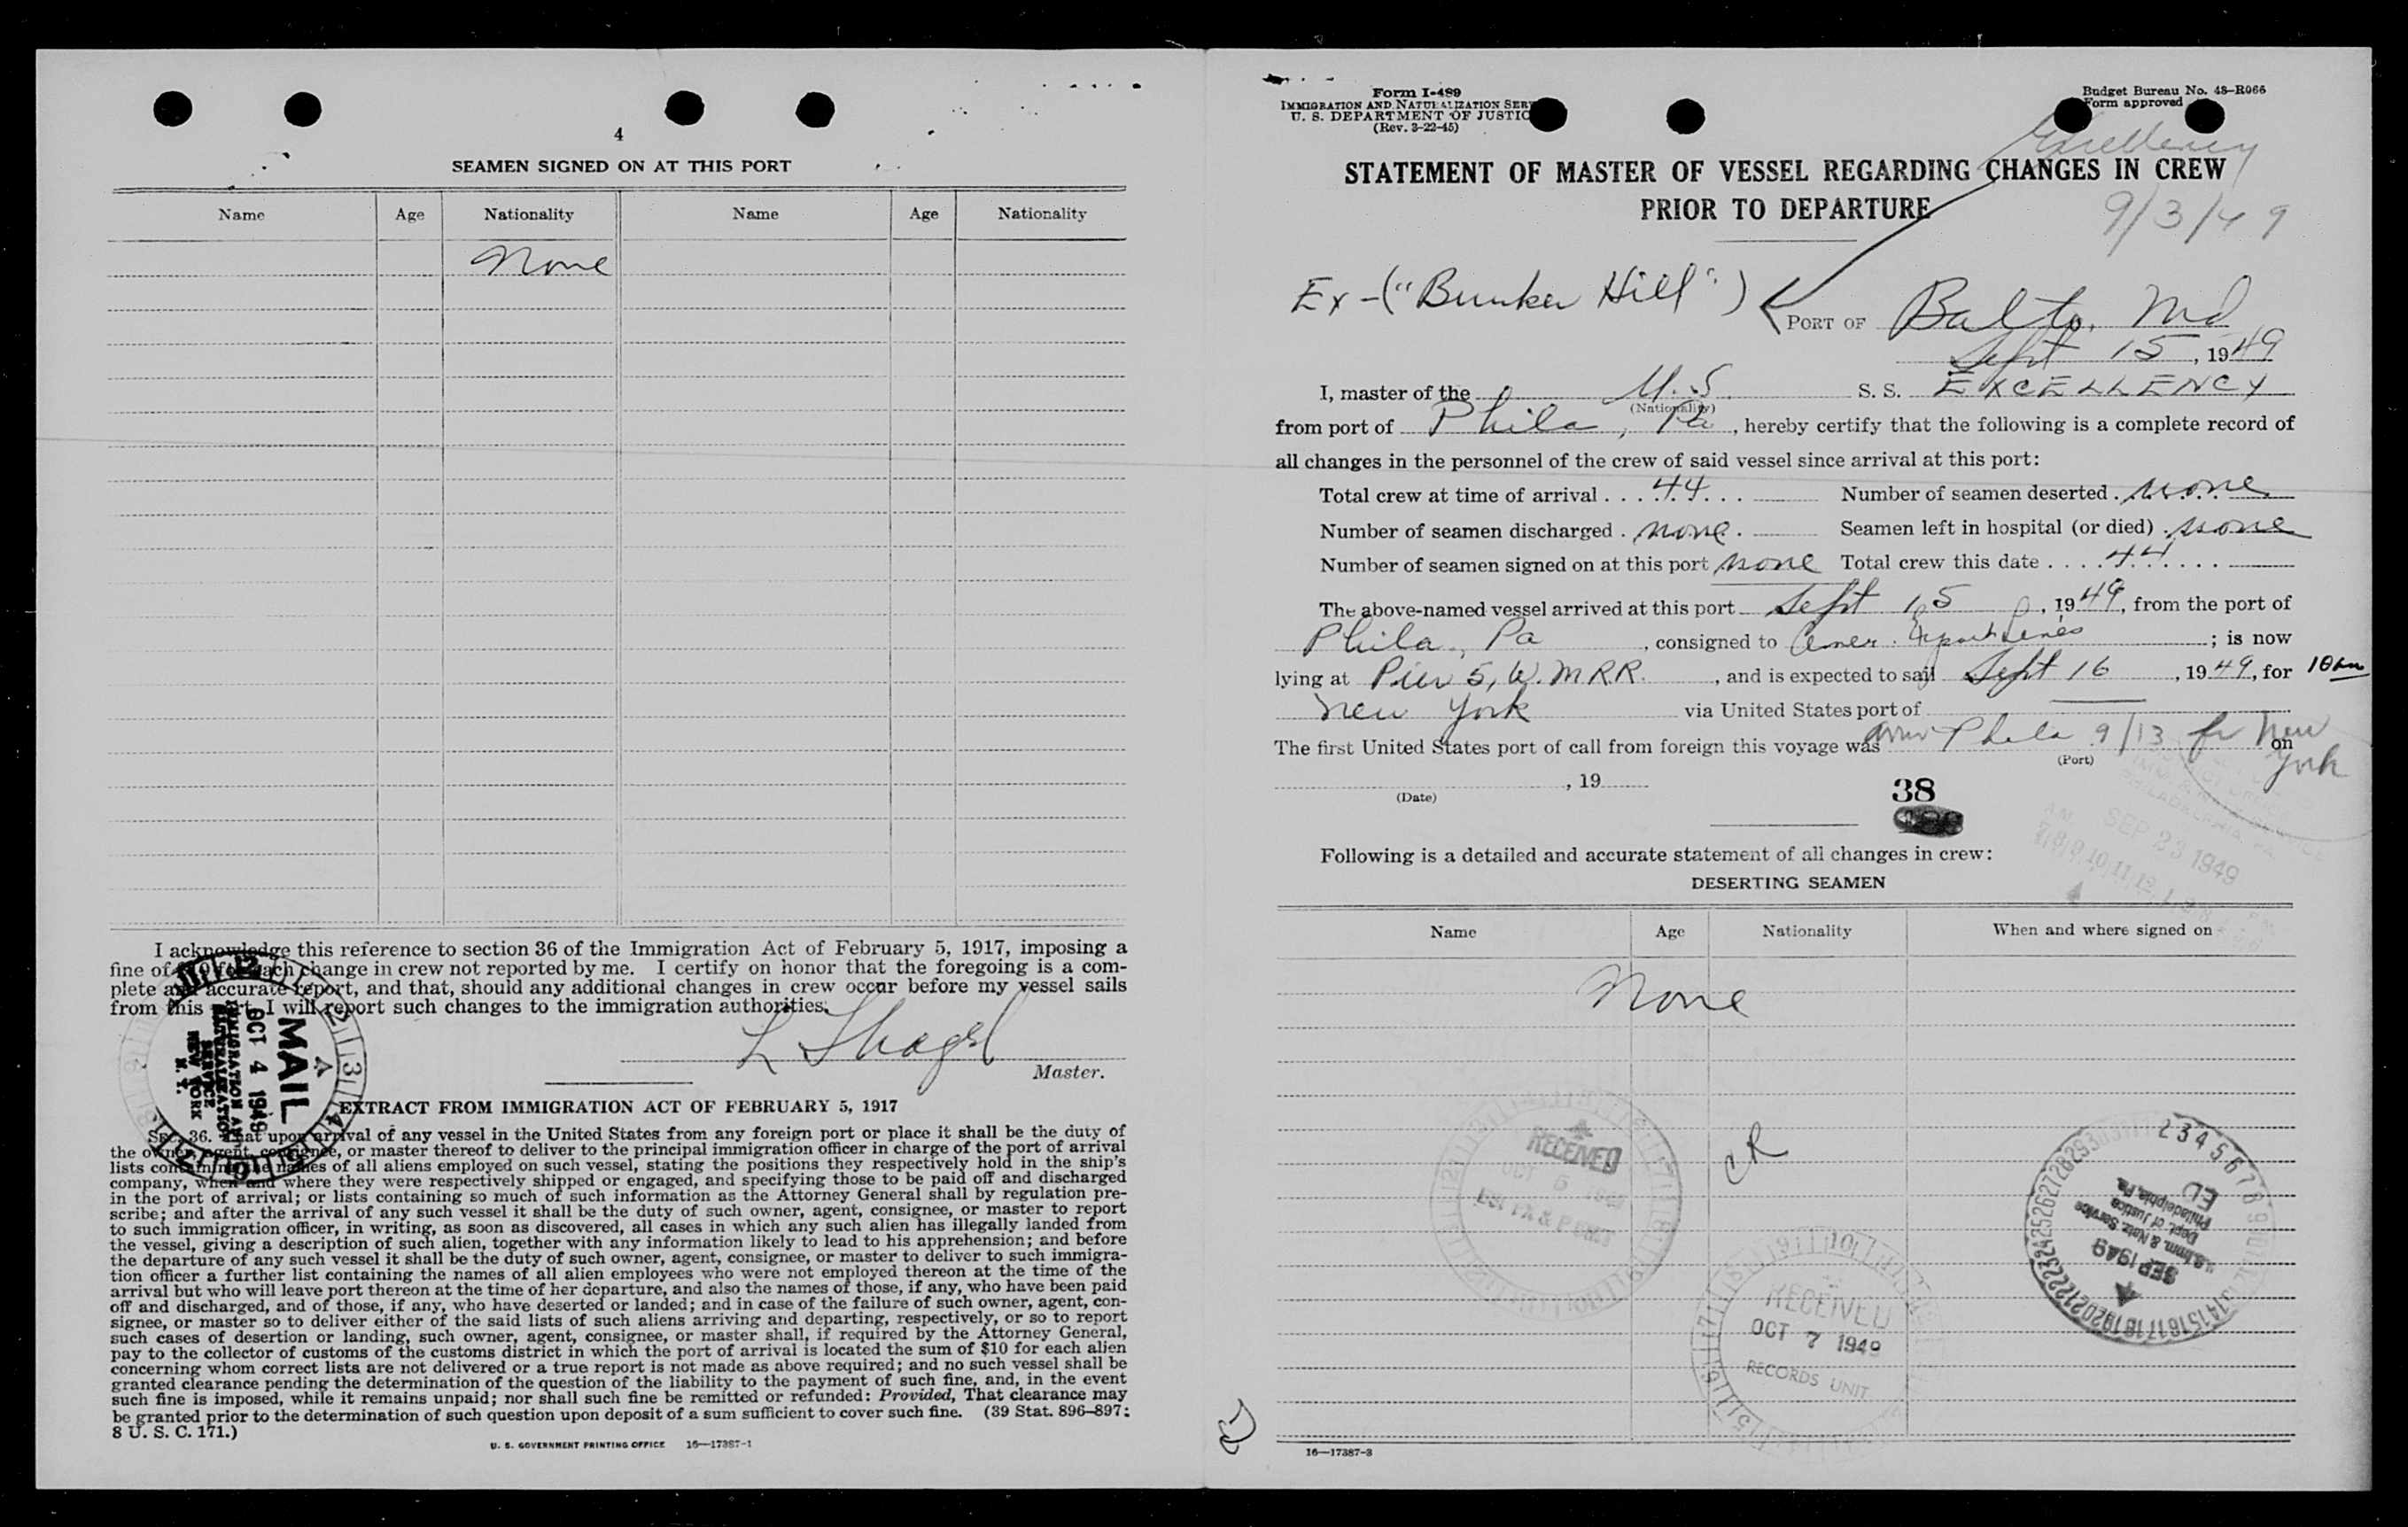 4
SEAMEN SIGNED ON AT THIS PORT
Name Age Nationality Name Age Nationality
None
I acknowledge this reference to section 36 of the Immigration Act of February 5, 1917, imposing a
fine of $10 for each change in crew not reported by me. I certify on honor that the foregoing is a com-
plete and accurate report, and that, should any additional changes in crew occur before my vessel sails
from this port, I will report such changes to the immigration authorities.
Master.
MAIL
OCT 4 1949
IMMIGRATION AND
NATURALIZATION
SERVICE
NEW YORK
N. Y.
EXTRACT FROM IMMIGRATION ACT OF FEBRUARY 5, 1917
SEC. 36. That upon arrival of any vessel in the United States from any foreign port or place it shall be the duty of
the owner, agent, consignee, or master thereof to deliver to the principal immigration officer in charge of the port of arrival
lists containing the names of all aliens employed on such vessel, stating the positions they respectively hold in the ship's
company, when and where they were respectively shipped or engaged, and specifying those to be paid off and discharged
in the port of arrival; or lists containing so much of such information as the Attorney General shall by regulation pre-
scribe; and after the arrival of any such vessel it shall be the duty of such owner, agent, consignee, or master to report
to such immigration officer, in writing, as soon as discovered, all cases in which any such alien has illegally landed from
the vessel, giving a description of such alien, together with any information likely to lead to his apprehension; and before
the departure of any such vessel it shall be the duty of such owner, agent, consignee, or master to deliver to such immigra-
tion officer a further list containing the names of all alien employees who were not employed thereon at the time of the
arrival but who will leave port thereon at the time of her departure, and also the names of those, if any, who have been paid
off and discharged, and of those, if any, who have deserted or landed; and in case of the failure of such owner, agent, con-
signee, or master so to deliver either of the said lists of such aliens arriving and departing, respectively, or so to report
such cases of desertion or landing, such owner, agent, consignee, or master shall, if required by the Attorney General,
pay to the collector of customs of the customs district in which the port of arrival is located the sum of $10 for each alien
concerning whom correct lists are not delivered or a true report is not made as above required; and no such vessel shall be
granted clearance pending the determination of the question of the liability to the payment of such fine, and, in the event
such fine is imposed, while it remains unpaid; nor shall such fine be remitted or refunded: Provided, That clearance may
be granted prior to the determination of such question upon deposit of a sum sufficient to cover such fine. (39 Stat. 896–897;
8 U. S. C. 171.)
U. S. GOVERNMENT PRINTING OFFICE 16—17387-1
Form I-489
IMMIGRATION AND NATURALIZATION SERV
U. S. DEPARTMENT OF JUSTIC
(Rev. 3-22-45)
Budget Bureau No. 43-R066
Form approved
Excellency
9/3/49
STATEMENT OF MASTER OF VESSEL REGARDING CHANGES IN CREW
PRIOR TO DEPARTURE
Ex-("Bunker Hill")
PORT OF Balto, Md
Sept 15, 1949
I, master of the U.S. S. S. EXCELLENCY
(Nationality)
from port of Phila, Pa, hereby certify that the following is a complete record of
all changes in the personnel of the crew of said vessel since arrival at this port:
Total crew at time of arrival 44 Number of seamen deserted none
Number of seamen discharged none Seamen left in hospital (or died) none
Number of seamen signed on at this port none Total crew this date 44
The above-named vessel arrived at this port Sept 15, 1949, from the port of
Phila, Pa, consigned to Amer. Export Lines; is now
lying at Pier 5, W.M.R.R., and is expected to sail Sept 16, 1949, for 10am
New York via United States port of
The first United States port of call from foreign this voyage was Arriv Phila 9/13 fr New York on
(Port)
, 19
(Date)
38
SEP 23 1949
Following is a detailed and accurate statement of all changes in crew:
DESERTING SEAMEN
Name Age Nationality When and where signed on
None
CR
RECEIVED
RECEIVED
OCT 7 1949
RECORDS UNIT
ED
Philadelphia, Pa.
Dept. of Justice
U.S. Imm. & Natz. Service
SEP 1949
16—17387-3